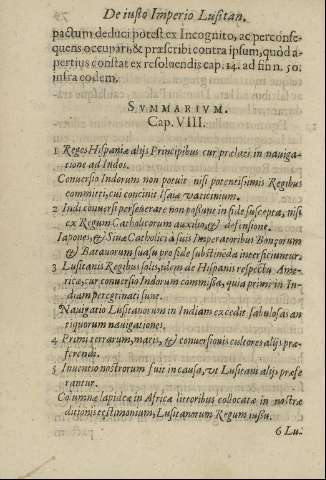 De iusto Imperio Lusitan.
pactum deduci potest ex Incognito, ac per conse-
quens occupari, & præscribi contra ipsum, quod a-
pertius constat ex resoluendis cap. 14. ad fin n. 50.
infra eodem.
SVMMARIVM.
Cap. VIII.
1 Reges Hispaniæ alijs Principibus cur prælati in nauiga-
tione ad Indos.
Conuersio Indorum non potuit nisi potentissimis Regibus
committi, cui concinit Isaiæ vaticinium.
2 Indi conuersi perseuerare non possunt in fide suscepta, nisi
ex Regum Catholicorum auxilio, & defensione.
Iapones, & Sinæ Catholici à suis Imperatoribus Bonzorum
& Batauorum suasu pro fide substinẽda interficiuntur.
3 Lusitanis Regibus solis, idem de Hispanis respectu Ame-
ricæ, cur conuersio Indorum commissa, quia primi in In-
diam peregrinati sunt.
Nauigatio Lusitanorum in Indiam excedit fabulosas an
tiquorum nauigationes.
4 Primi terrarum, maris, & conuersionis cultores alijs præ-
ferendi.
5 Inuentio nostrorum fuit in causa, vt Lusitani alijs præfe
rantur.
Columnæ lapideæ in Africæ littoribus collocatæ in nostræ
ditionis testimonium, Lusitanorum Regum iussu.
6 Lu-